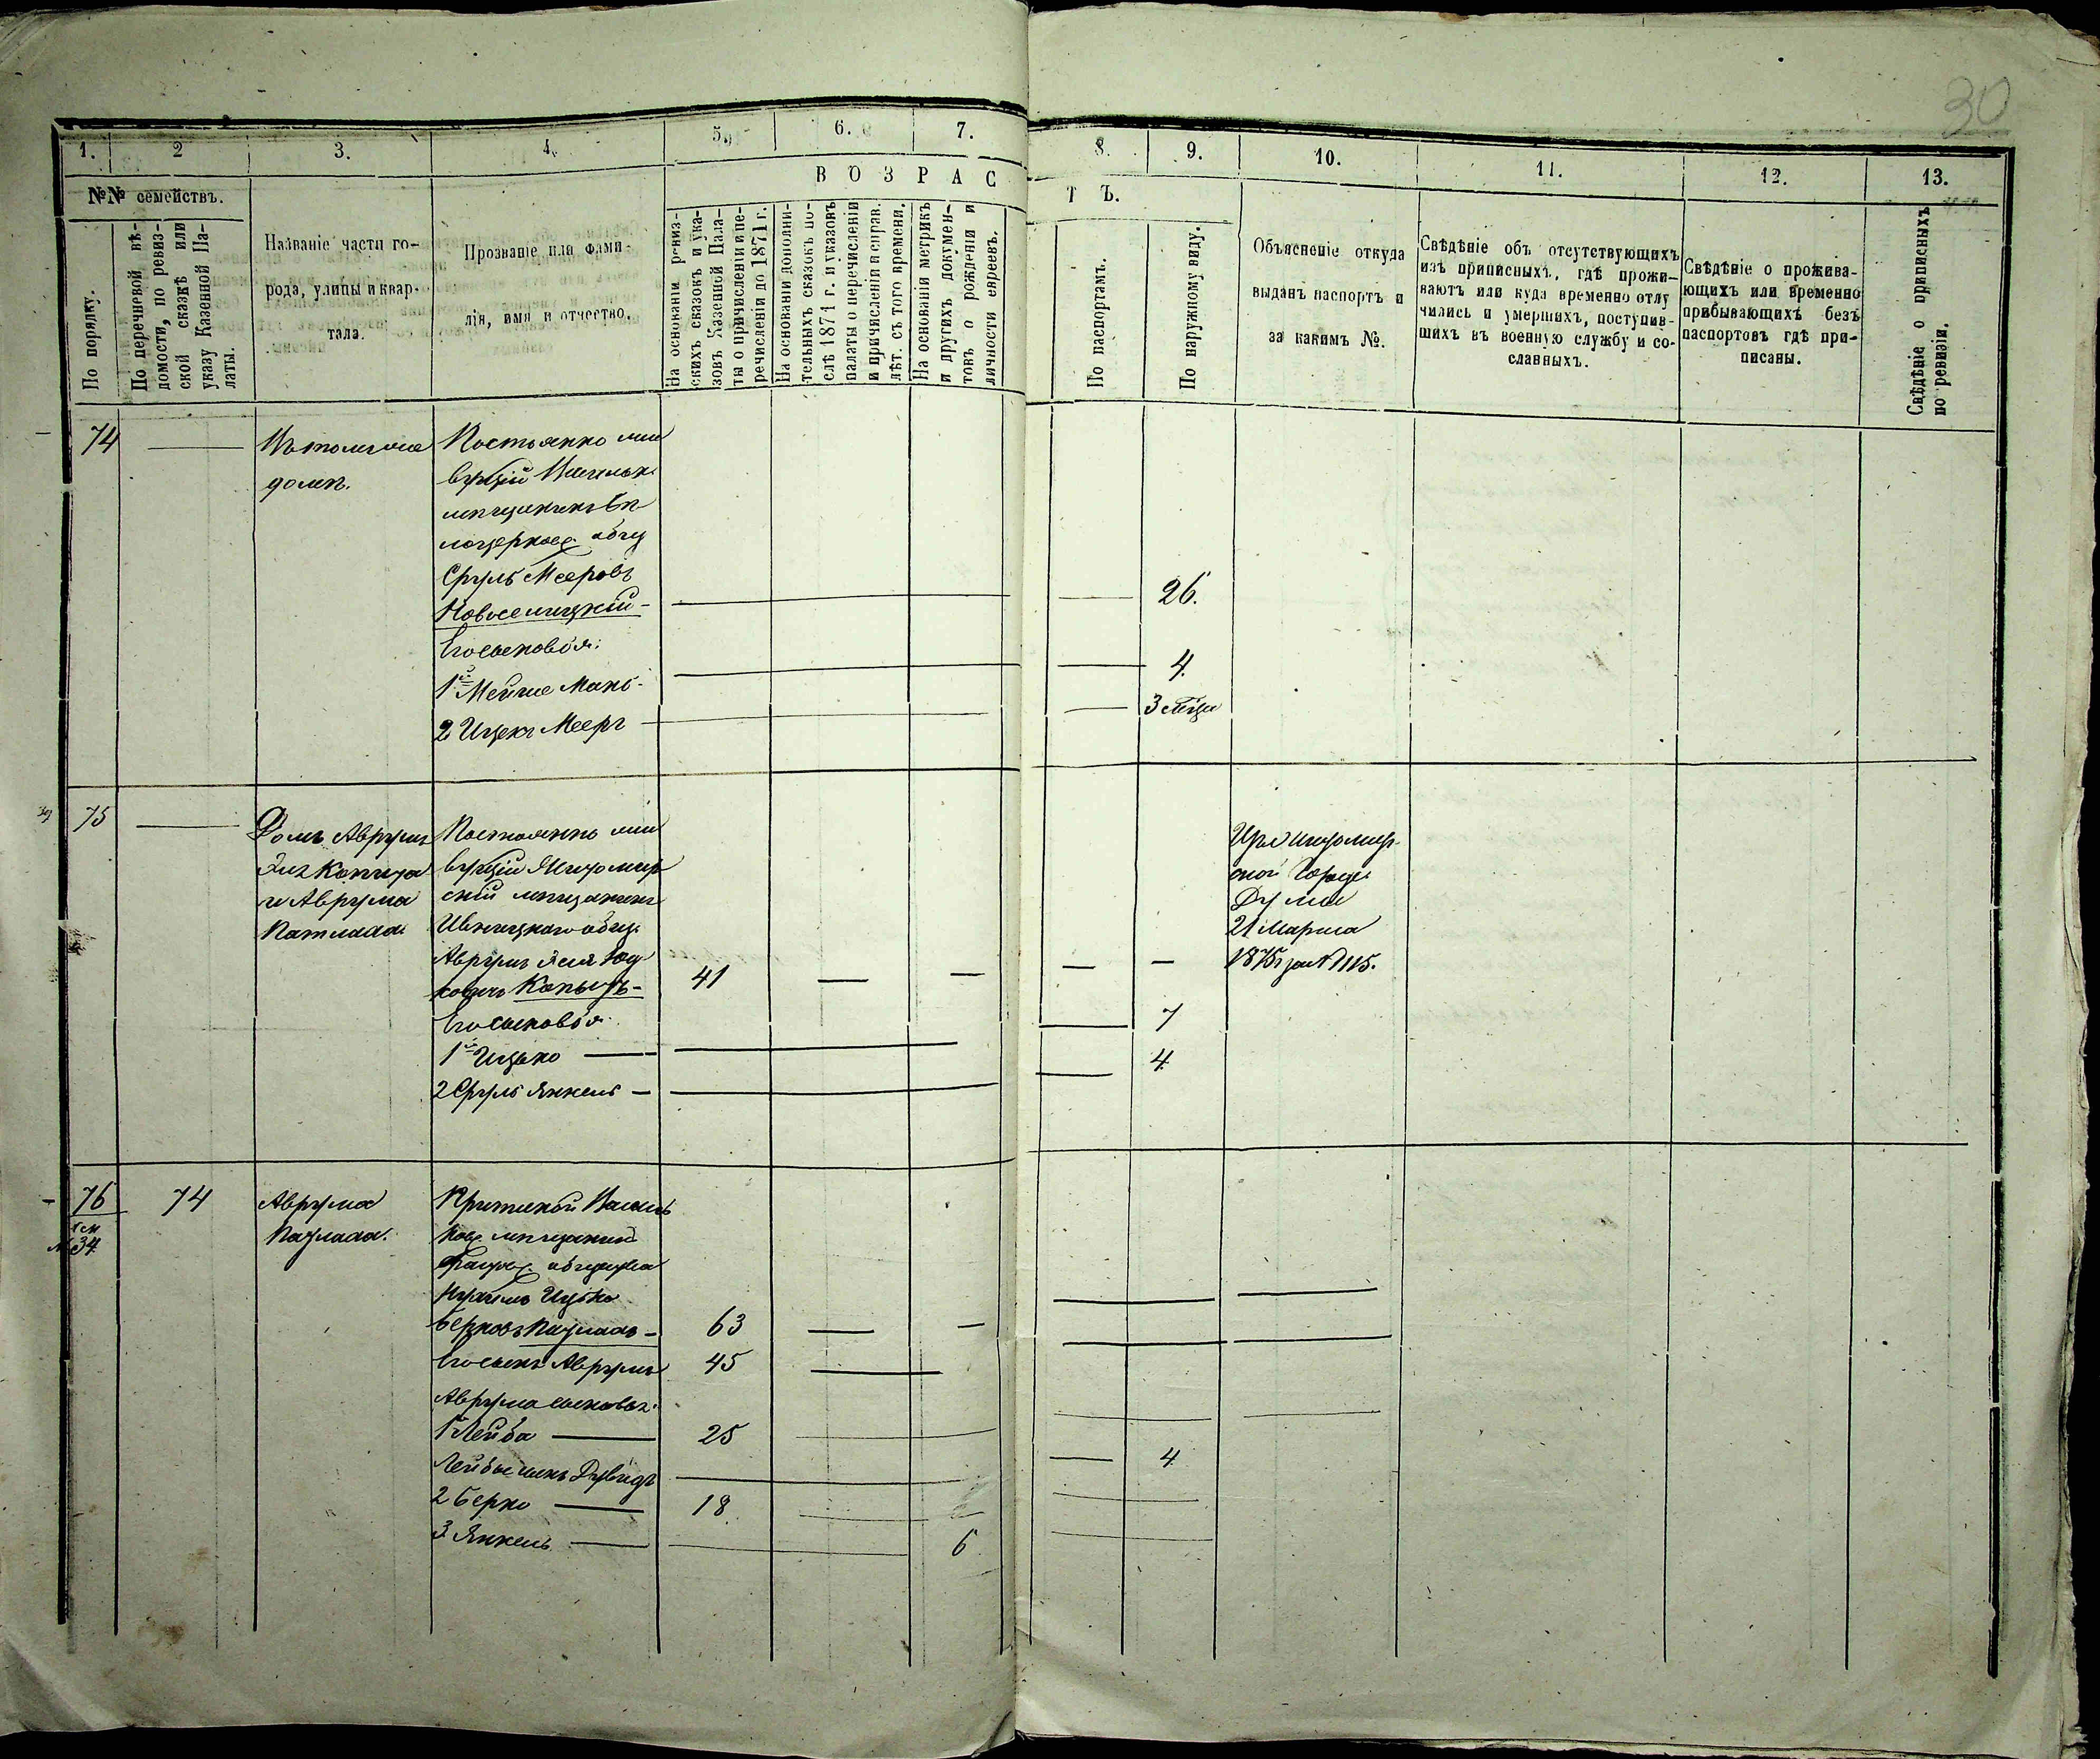 30
1. 2 3. 4. 5. 6. 7. 8. 9. 10. 11. 12. 13.
№№ семействъ.
По порядку.
По перечневой вѣ-
домости, по ревиз-
ской сказкѣ или
указу Казенной Па-
латы.
Названіе части го-
рода, улицы и квар-
тала.
Прозваніе или фами-
лія, имя и отчество.
ВОЗРАСТЪ.
На основаніи ревиз-
скихъ сказокъ и ука-
зовъ Казенной Пала-
ты о причисленіи и пе-
речисленіи до 1871 г.
На основаніи дополни-
тельныхъ сказокъ по-
слѣ 1871 г. и указовъ
палаты о перечисленіи
и причисленіи и справ.
лѣт. съ того времени.
На основаніи метрикъ
и другихъ докумен-
товъ о рожденіи и
личности евреевъ.
По паспортамъ.
По наружному виду.
Объясненіе откуда
выданъ паспортъ и
за какимъ №.
Свѣдѣніе объ отсутствующихъ
изъ приписныхъ, гдѣ прожи-
ваютъ или куда временно отлу
чились и умершихъ, поступив-
шихъ въ военную службу и со-
славныхъ.
Свѣдѣніе о прожива-
ющихъ или временно
прибывающихъ безъ
паспортовъ гдѣ при-
писаны.
Свѣдѣніе о приписныхъ
по ревизіи.
74
Въ томъ же
домѣ.
Постоянно жи
вущій Васильк.
мѣщанинъ Бѣ
лоцерков. общ
Сруль Мееровъ
Новоселицкій - 26.
Его сыновья:
1й Мейше Мань - 4.
2 Ицекъ Мееръ 3 мѣсяца
75
Домъ Аврумъ
Эля Копыта
и Аврума
Патлаха.
Постоянно жи
вущій Житомир
скій мѣщанинъ
Ивницкаго общ.
Аврумъ Эля Юд
ковичъ Копытъ - 41
Его сыновья:
1й Ицько 7
2 Сруль Янкель - 4.
Изъ Житомир
ской Город
Думы
21 Марта
1875 г за № 1115.
76 74
см
№ 34.
Аврума
Патлаха.
Приписной Василь
ков. мѣщанинъ
Фастов. общества
Ицько
Берковъ Патлахъ - 63
Его сынъ Аврумъ 45
Аврума сыновья:
1й Лейба 25
Лейбы сынъ Дувидъ 4
2 Берко 18
3 Янкель 6